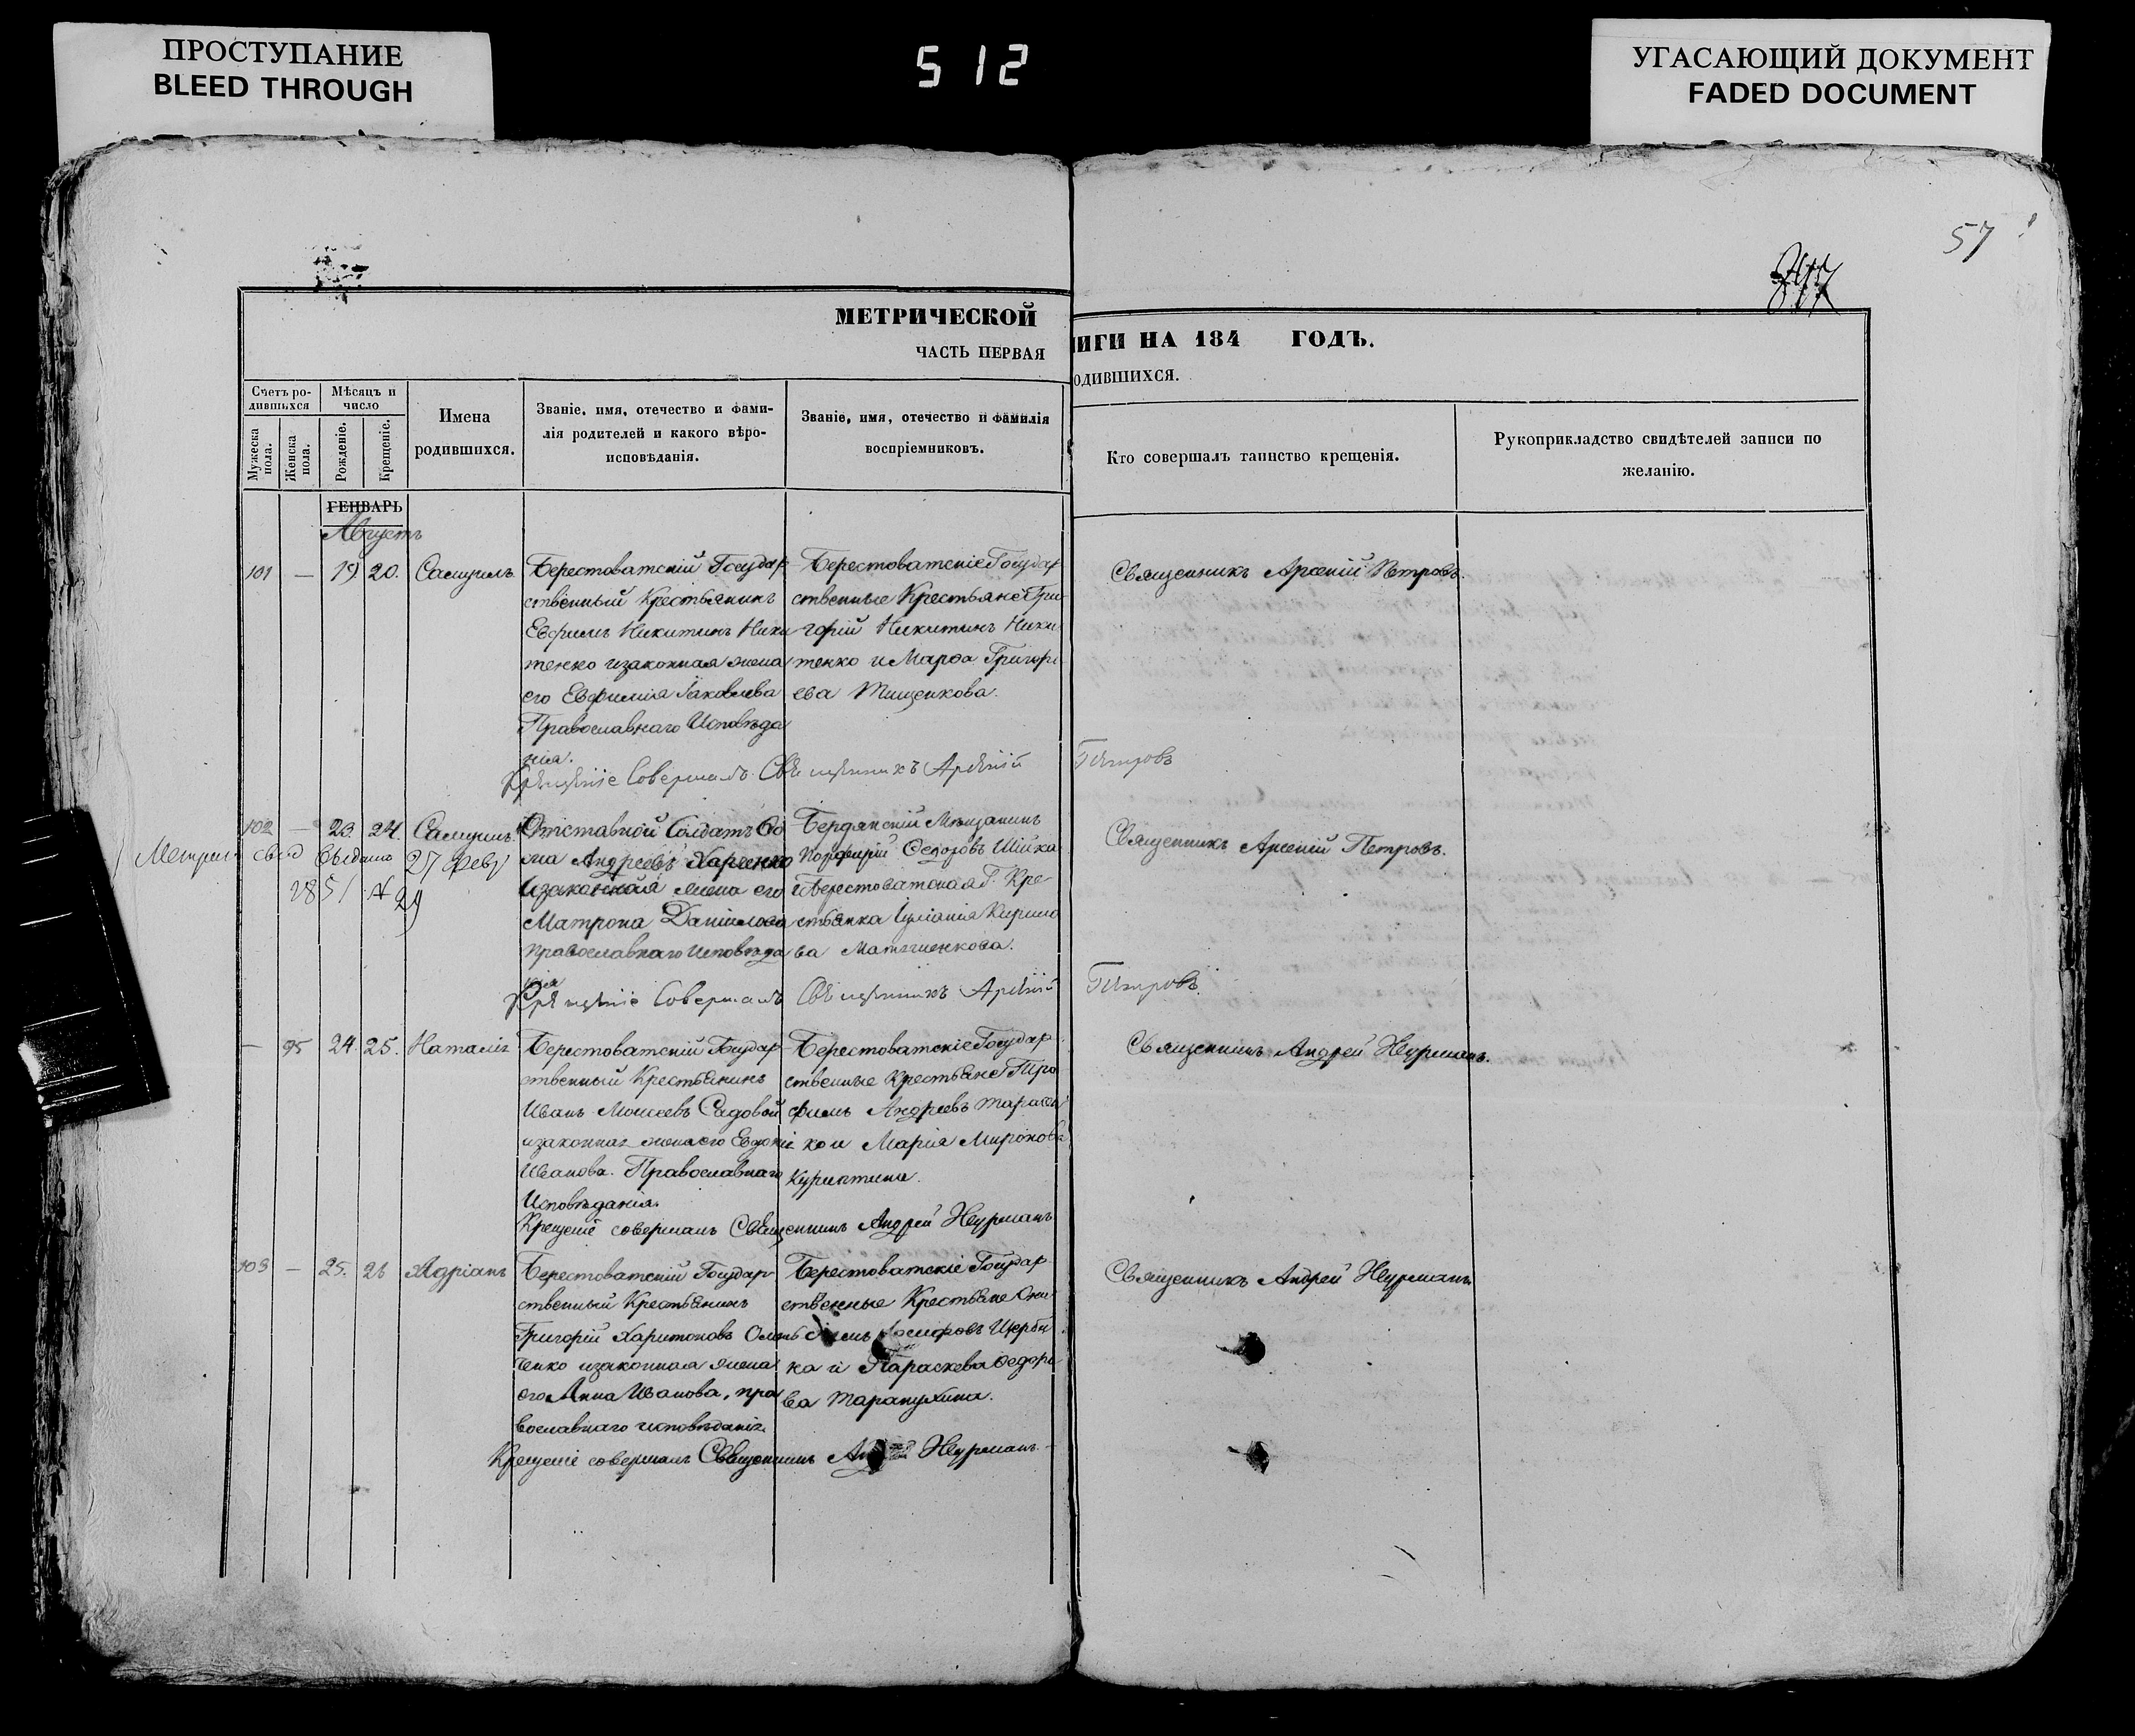 ПРОСТУПАНИЕ
BLEED THROUGH
512
УГАСАЮЩИЙ ДОКУМЕНТ
FADED DOCUMENT
57
МЕТРИЧЕСКОЙ
ИГИ НА 184 ГОДЪ.
ЧАСТЬ ПЕРВАЯ
ОДИВШИХСЯ.
Счетъ ро-
дившихся
Мужеска пола.
Женска пола.
Мѣсяцъ и
число
Рожденіе.
Крещеніе.
Имена
родившихся.
Званіе, имя, отечество и фами-
лія родителей и какого вѣро-
исповѣданія.
Званіе, имя, отечество и фамилія
воспріемниковъ.
Кто совершалъ таинство крещенія.
Рукоприкладство свидѣтелей записи по
желанію.
ГЕНВАРЬ
Августъ
101 — 19 20. Самуилъ.
Берестоватскій Государ
ственный Крестьянинъ
Евфимъ Никитинъ Ники
тенко изаконная жена
его Евфимія Іаковлева
Православнаго Исповѣда
нія.
Берестоватскіе Государ
ственные Крестьяне Гри
горій Никитинъ Ники
тенко и Марѳа Григорі
ева Тищенкова.
Священникъ Арсеній Петровъ.
Крещеніе Совершалъ Священникъ Арсеній Петровъ
102 — 23 24. Самуилъ.
Метрич. свид выдано 27 февр
1851 № 29
Отставной Солдатъ Ѳо
ма Андреевъ Харченко
Изаконная жена его
Матрона Даніилова
Православнаго Исповѣда
нія
Бердянскій Мѣщанинъ
Порфирій Ѳедоровъ Шійка
и Берестоватская Г. Кре
стьянка Іуліанія Кирило
ва Матвіенкова.
Священникъ Арсеній Петровъ.
Крещеніе Совершалъ Священникъ Арсеній Петровъ.
— 95 24 25. Наталія
Берестоватскій Государ
ственный Крестьянинъ
Иванъ Моисеевъ Садовой
изаконная жена его Евдокія
Иванова. Православнаго
Исповѣданія.
Берестоватскіе Государ
ственные Крестьяне Тро
фимъ Андреевъ Тарасен
ко и Марія Миронова
Священникъ Андрей Неурманъ.
Крещеніе совершалъ Священникъ Андрей Неурманъ
103 — 25. 26 Адріанъ
Берестоватскій Государ
ственный Крестьянинъ
Григорій Харитоновъ
ченко изаконная жена
его Анна Иванова, пра
вославнаго исповѣданія.
Берестоватскіе Государ
ственные Крестьяне
Щерби
ка и Параскева Ѳедоро
ва Тарапухина.
Священникъ Андрей Неурманъ
Крещеніе совершалъ Священникъ Неурманъ.